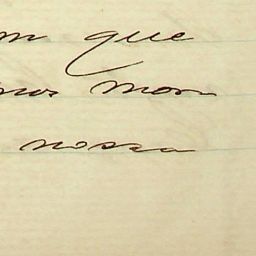 m que
nos mon
nossa